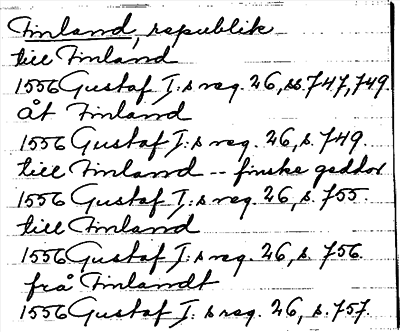 Finland, republik
till Finland
1556 Gustaf I:s reg. 26, ss. 747, 749.
åt Finland
1556 Gustaf I:s reg. 26, s. 749.
till Finland -- finske geddor
1556 Gustaf I:s reg. 26, s. 755.
till Finland
1556 Gustaf I:s reg. 26, s. 756.
frå Finlandt
1556 Gustaf I:s reg. 26, s. 757.